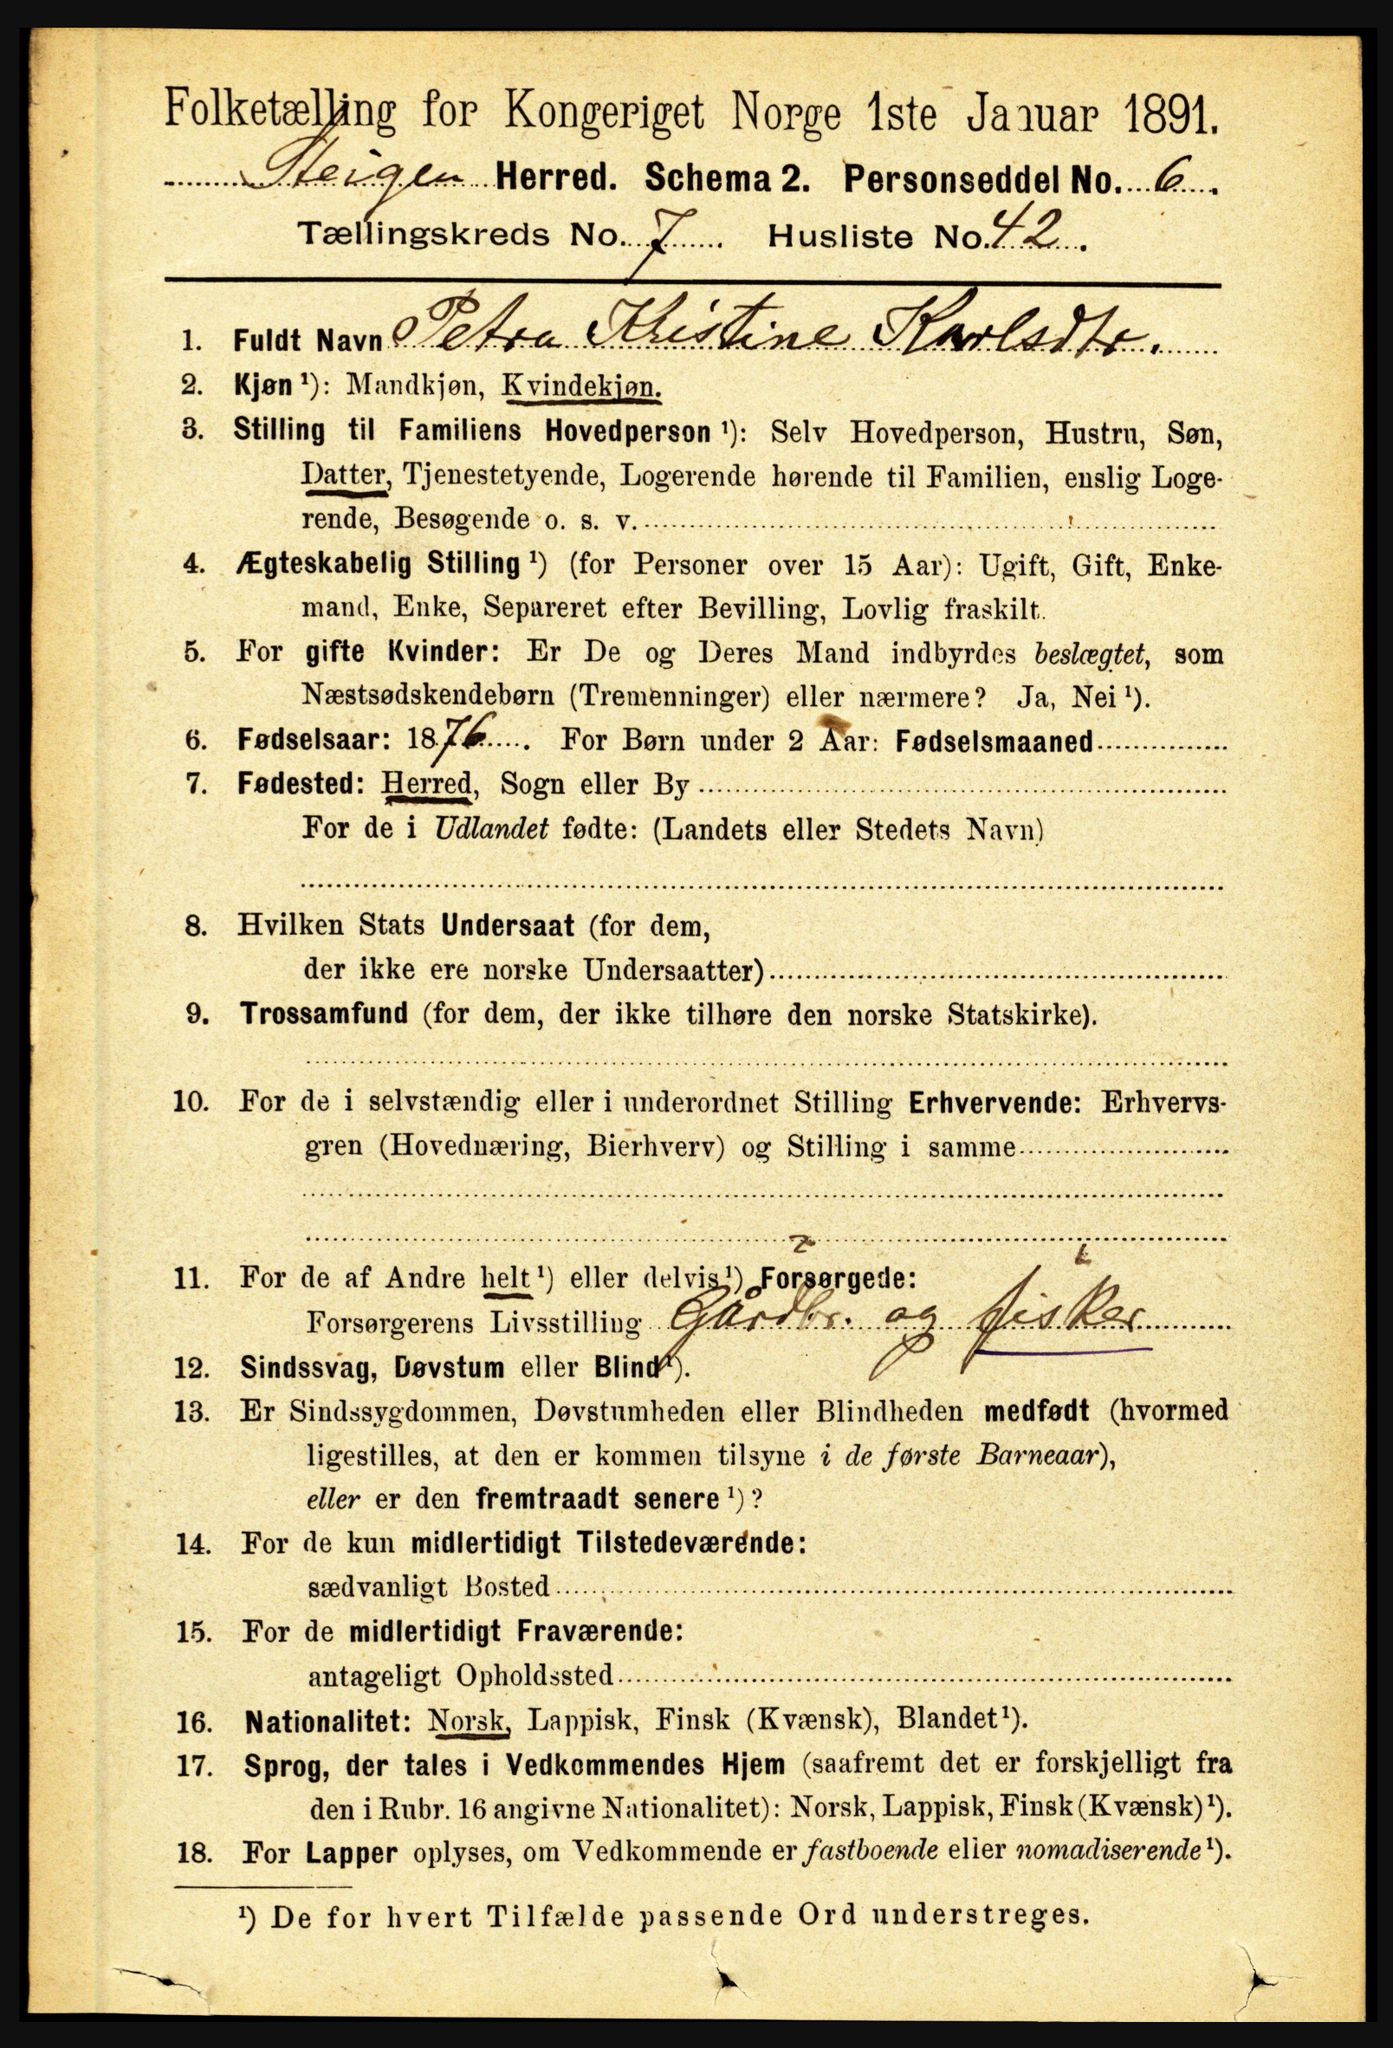 Folketælling for Kongeriget Norge 1ste Januar 1891.
Steigen Herred. Schema 2. Personseddel No. 6.
Tællingskreds No. 7. Husliste No. 42.
1. Fuldt Navn Petra Kristine Karlsdtr.
2. Kjøn ¹): Mandkjøn, Kvindekjøn.
3. Stilling til Familiens Hovedperson ¹): Selv Hovedperson, Hustru, Søn,
Datter, Tjenestetyende, Logerende hørende til Familien, enslig Loge-
rende, Besøgende o. s. v.
4. Ægteskabelig Stilling ¹) (for Personer over 15 Aar): Ugift, Gift, Enke-
mand, Enke, Separeret efter Bevilling, Lovlig fraskilt.
5. For gifte Kvinder: Er De og Deres Mand indbyrdes beslægtet, som
Næstsødskendebørn (Tremenninger) eller nærmere? Ja, Nei ¹).
6. Fødselsaar: 1876. For Børn under 2 Aar: Fødselsmaaned
7. Fødested: Herred, Sogn eller By
For de i Udlandet fødte: (Landets eller Stedets Navn)
8. Hvilken Stats Undersaat (for dem,
der ikke ere norske Undersaatter)
9. Trossamfund (for dem, der ikke tilhøre den norske Statskirke).
10. For de i selvstændig eller i underordnet Stilling Erhvervende: Erhvervs-
gren (Hovednæring, Bierhverv) og Stilling i samme
11. For de af Andre helt ¹) eller delvis ¹) Forsørgede:
Forsørgerens Livsstilling Gårdbr. og fisker
12. Sindssvag, Døvstum eller Blind ¹).
13. Er Sindssygdommen, Døvstumheden eller Blindheden medfødt (hvormed
ligestilles, at den er kommen tilsyne i de første Barneaar),
eller er den fremtraadt senere ¹)?
14. For de kun midlertidigt Tilstedeværende:
sædvanligt Bosted
15. For de midlertidigt Fraværende:
antageligt Opholdssted
16. Nationalitet: Norsk, Lappisk, Finsk (Kvænsk), Blandet ¹).
17. Sprog, der tales i Vedkommendes Hjem (saafremt det er forskjelligt fra
den i Rubr. 16 angivne Nationalitet): Norsk, Lappisk, Finsk (Kvænsk) ¹).
18. For Lapper oplyses, om Vedkommende er fastboende eller nomadiserende ¹).
¹) De for hvert Tilfælde passende Ord understreges.